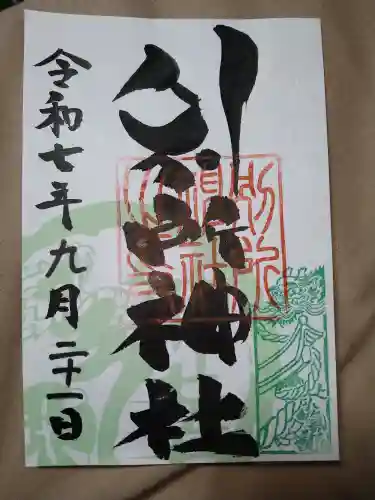 別所神社
令和七年九月二十一日